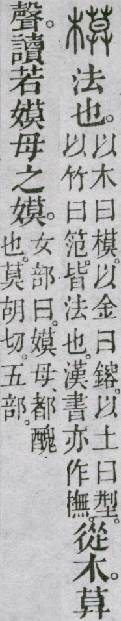 模法也。以木曰模。以金曰鎔。以土曰型。以竹曰笵。皆法也。漢書亦作橅。從木莫
聲。讀若嫫母之嫫。女部曰。嫫母、都醜也。莫胡切。五部。